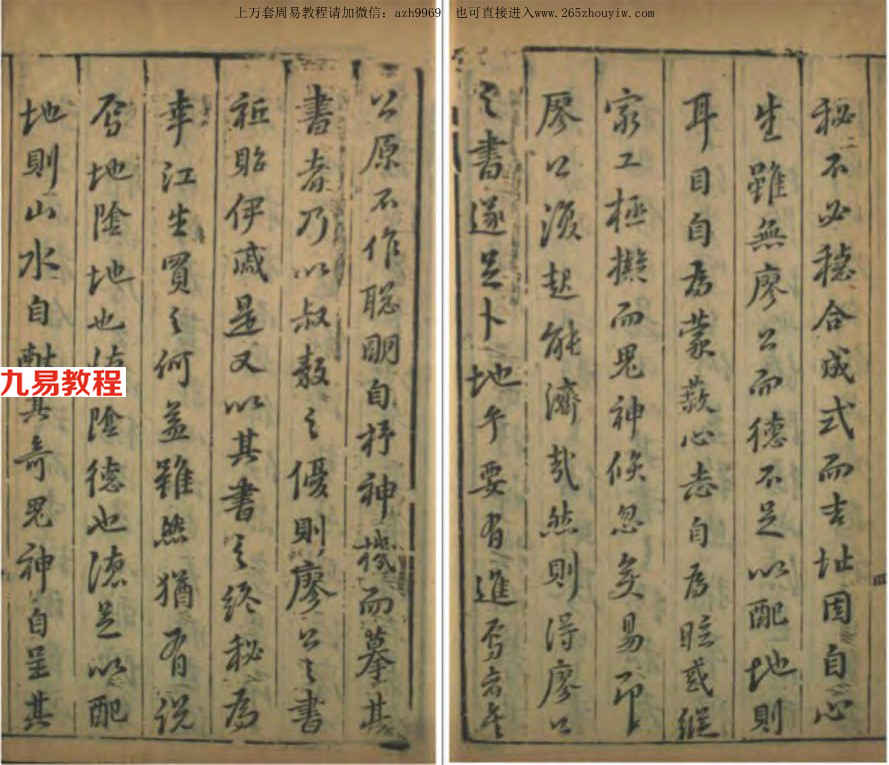 上万套周易教程请加微信:azh9969 也可直接进入www.265zhouyiw.com
公原不作聰明自抒神機而摹其
書者乃以叔敖之優則廖公之書
秪貽伊戚是又以其書之終秘為
幸江生買之何益雖然猶有說
焉地陰地也陰德也德足以配
地則山水自獻其奇鬼神自呈其
秘不必穩合成式而吉址固自心
生雖無廖公而德不足以配地則
耳目自為蒙蔽心志自為眩惑縱
家工極擬而鬼神倏忽變易即
廖公復起能濟哉然則得廖公
之書遂足卜地乎要有進焉者矣
九易教程